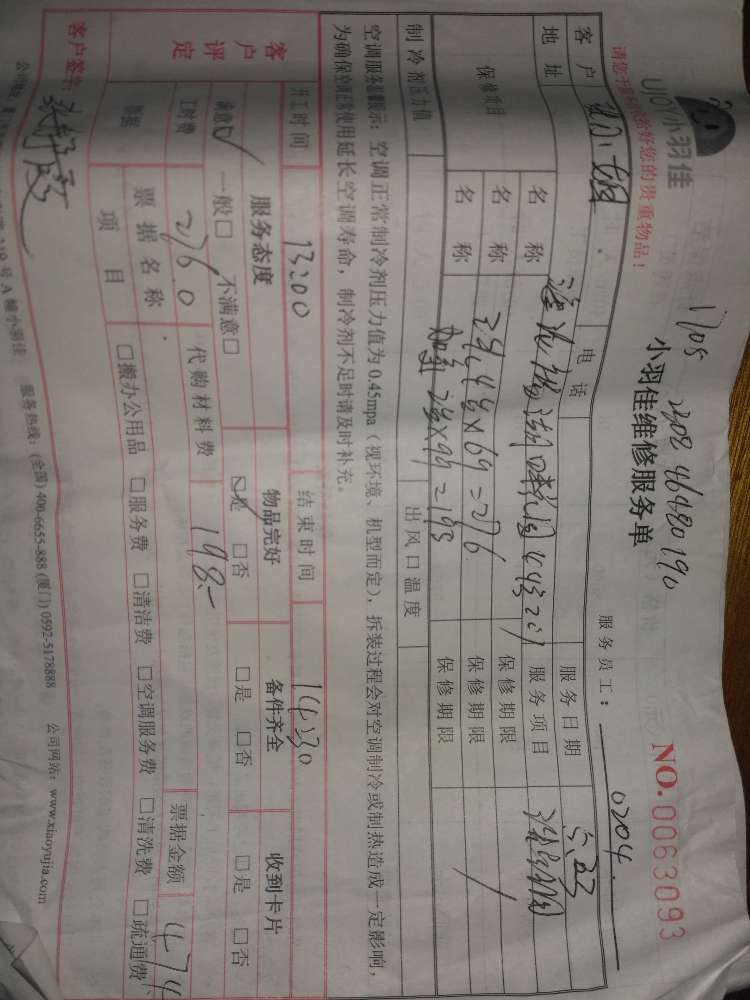 UJOY小羽佳
请您主动保管好您的贵重物品!
1705 2302 46480190
小羽佳维修服务单
NO. 0063093
服务员工: 0204
客户 小姐 电话 服务日期
地址 服务项目
保修项目 名称 保修期限
名称 2.9, 4台×69=276 保修期限
名称 加氟 2台×99=198 保修期限
制冷剂压力值 出风口温度
空调服务温馨提示: 空调正常制冷剂压力值为0.45mpa(视环境、机型而定), 拆装过程会对空调制冷或制热造成一定影响,
为确保空调正常使用延长空调寿命, 制冷剂不足时请及时补充。
开工时间 13:00 结束时间 14:30
客户评定 服务态度 物品完好 备件齐全 收到卡片
满意☑ 一般□ 不满意□ ☑是 □否 □是 □否 □是 □否
工时费 276.0 代购材料费 198.-
票据 票据名称 票据金额 474
项目 □搬办公用品 □服务费 □清洁费 □空调服务费 □清洗费 □疏通费
客户签名:
号A幢小羽佳 服务热线: (全国) 400-6655-888 (厦门) 0592-5178888 公司网站: www.xiaoyujia.com